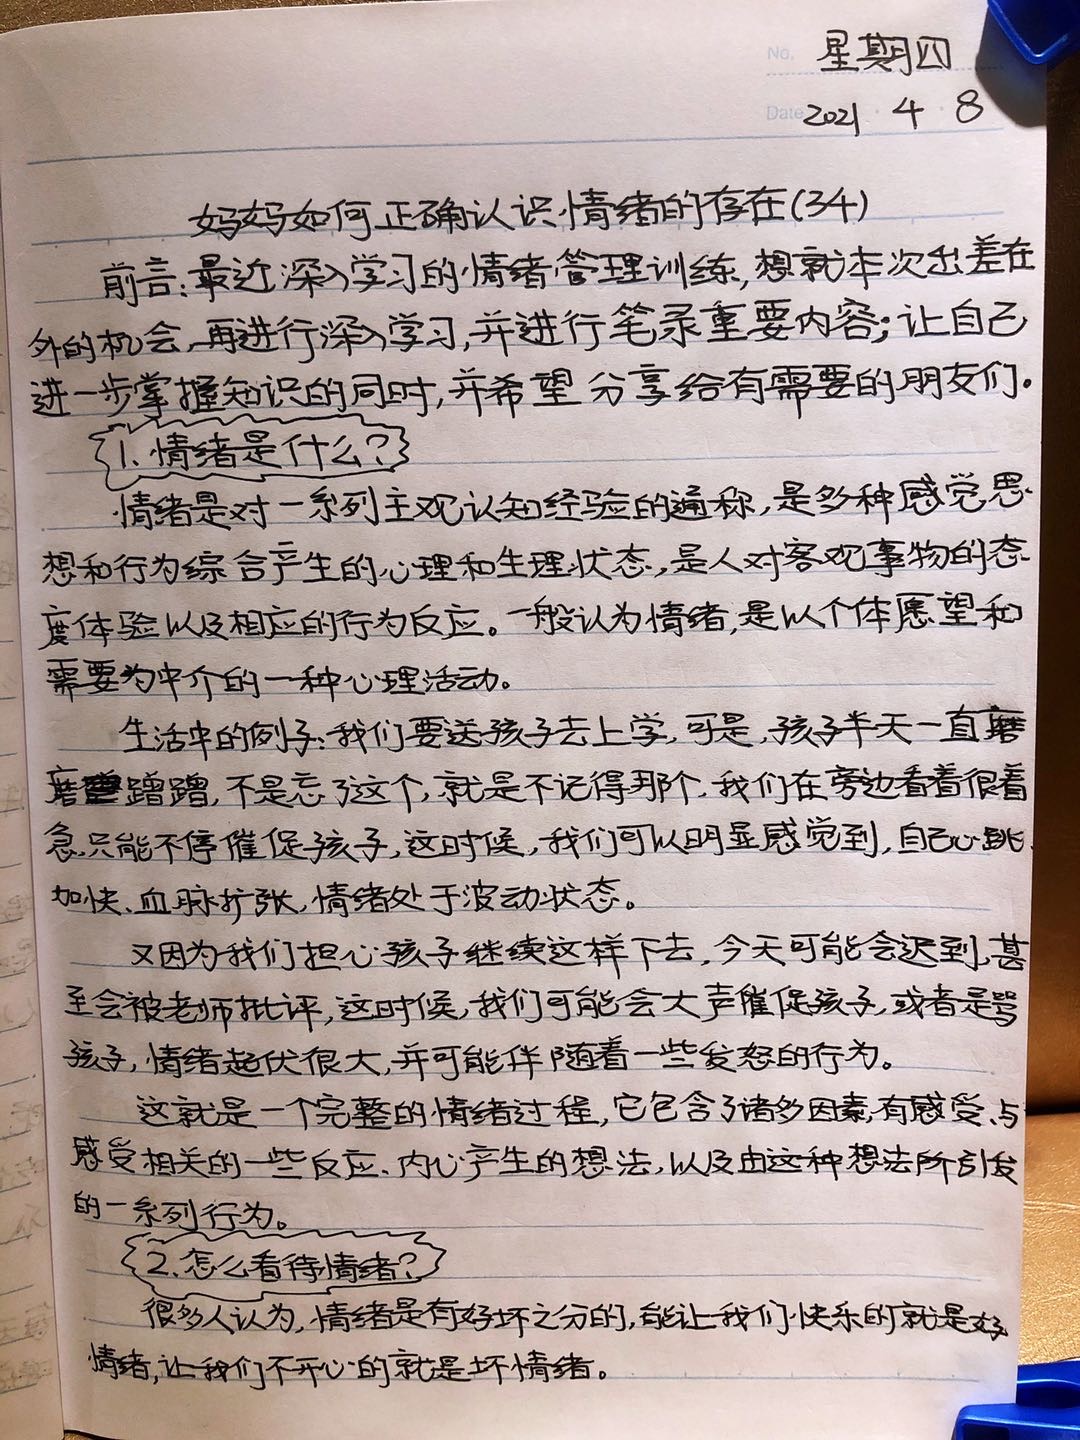 No. 星期四
Date 2021 · 4 · 8
妈妈如何正确认识情绪的存在(34)
前言:最近深入学习的情绪管理训练,想就本次出差在
外的机会,再进行深入学习,并进行笔录重要内容;让自己
进一步掌握知识的同时,并希望分享给有需要的朋友们。
1.情绪是什么?
情绪是对一系列主观认知经验的通称,是多种感觉、思
想和行为综合产生的心理和生理状态,是人对客观事物的态
度体验以及相应的行为反应。一般认为情绪,是以个体愿望和
需要为中介的一种心理活动。
生活中的例子:我们要送孩子去上学,可是,孩子半天一直磨
磨蹭蹭,不是忘了这个,就是不记得那个,我们在旁边看着很着
急,只能不停催促孩子,这时候,我们可以明显感觉到,自己心跳
加快、血脉扩张,情绪处于波动状态。
又因为我们担心孩子继续这样下去,今天可能会迟到,甚
至会被老师批评,这时候,我们可能会大声催促孩子,或者是骂
孩子,情绪起伏很大,并可能伴随着一些发怒的行为。
这就是一个完整的情绪过程,它包含了诸多因素,有感受、与
感受相关的一些反应、内心产生的想法,以及由这种想法所引发
的一系列行为。
2.怎么看待情绪?
很多人认为,情绪是有好坏之分的,能让我们快乐的就是好
情绪,让我们不开心的就是坏情绪。